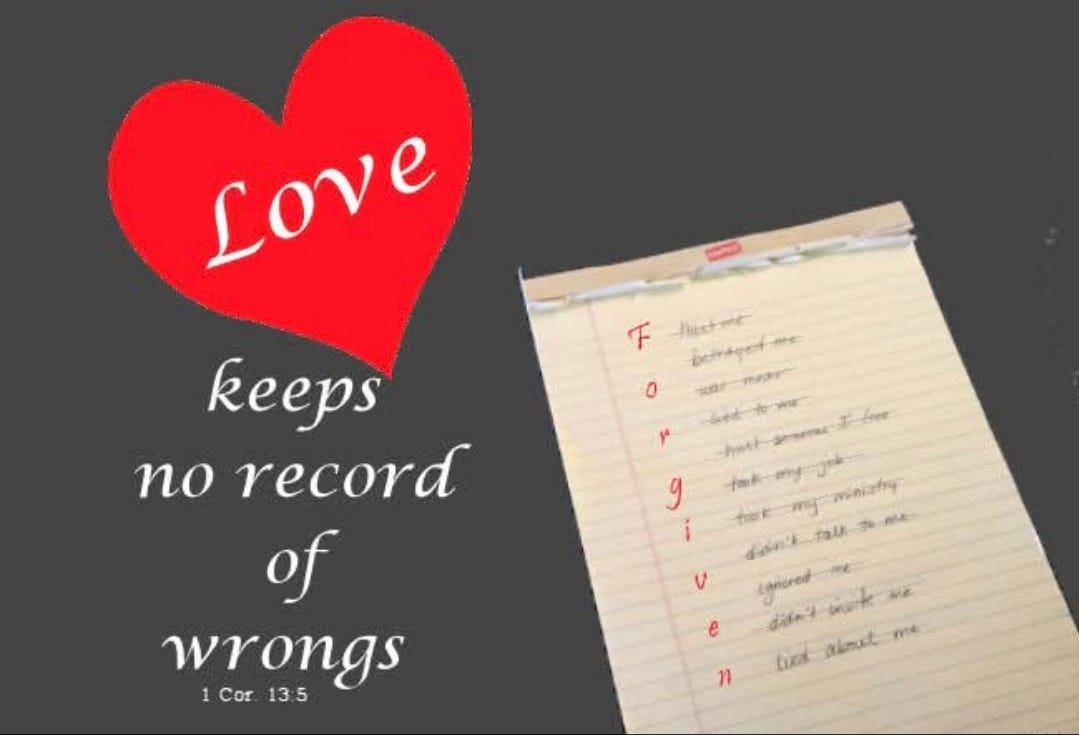 Love
keeps
no record
of
wrongs
1 Cor. 13:5
F
o
r
g
i
v
e
n
hurt me
betrayed me
was mean
lied to me
hurt someone I love
took my job
took my ministry
didn't talk to me
ignored me
didn't invite me
lied about me